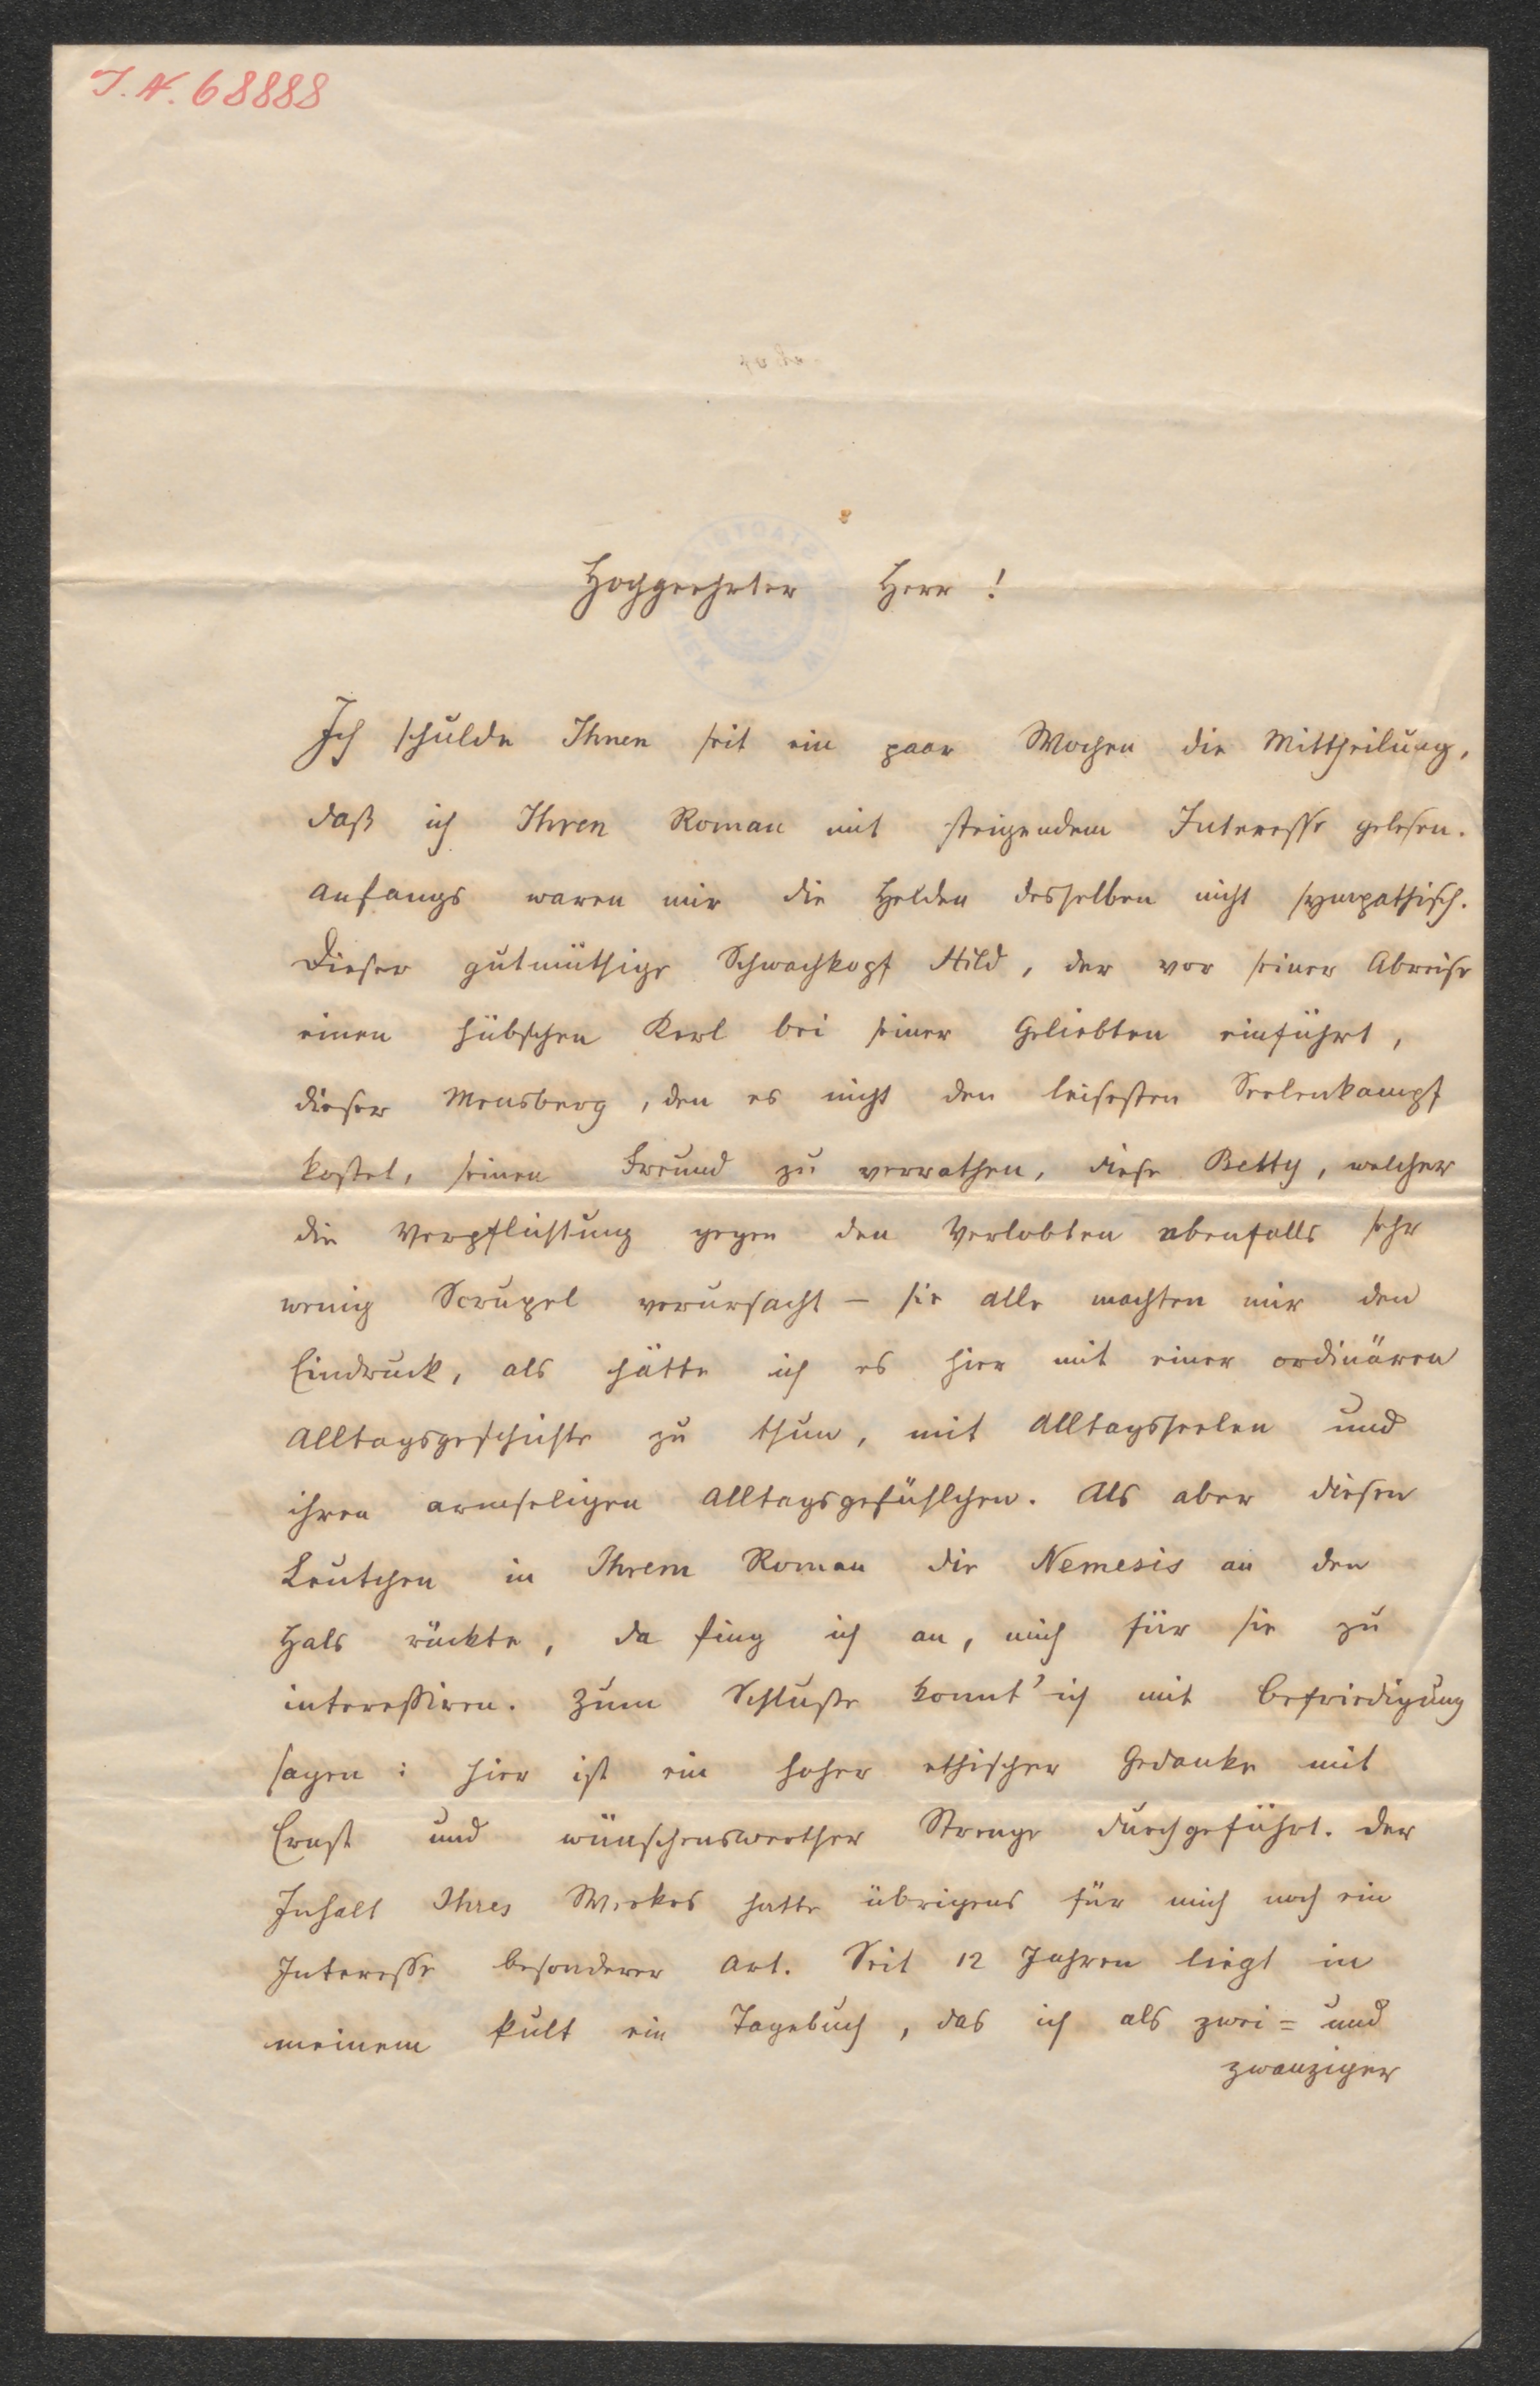 I. N. 68888
Hochgeehrter Herr!
Ich schulde Ihnen seit ein paar Wochen die Mittheilung,
daß ich Ihren Roman mit steigendem Interesse gelesen.
Anfangs waren mir die Helden desselben nicht sympathisch.
Dieser gutmüthige Schwachkopf Hild, der vor seiner Abreise
einen hübschen Kerl bei seiner Geliebten einführt,
dieser Mensberg, den es nicht den leisesten Seelenkampf
kostet, seinen Freund zu verrathen, diese Betty, welcher
die Verpflichtung gegen den Verlobten ebenfalls sehr
wenig Scrupel verursacht – sie alle machten mir den
Eindruck, als hätte ich es hier mit einer ordinären
Alltagsgeschichte zu thun, mit Alltagsseelen und
ihren armseligen Alltagsgefühlchen. Als aber diesen
Leutchen in Ihrem Roman die Nemesis an den
Hals rückte, da fing ich an, mich für sie zu
interessiren. Zum Schluße konnt' ich mit Befriedigung
sagen: hier ist ein hoher ethischer Gedanke mit
Ernst und wünschenswerther Strenge durchgeführt. Der
Inhalt Ihres Werkes hatte übrigens für mich noch ein
Interesse besonderer Art. Seit 12 Jahren liegt in
meinem Pult ein Tagebuch, das ich als zwei= und
zwanziger